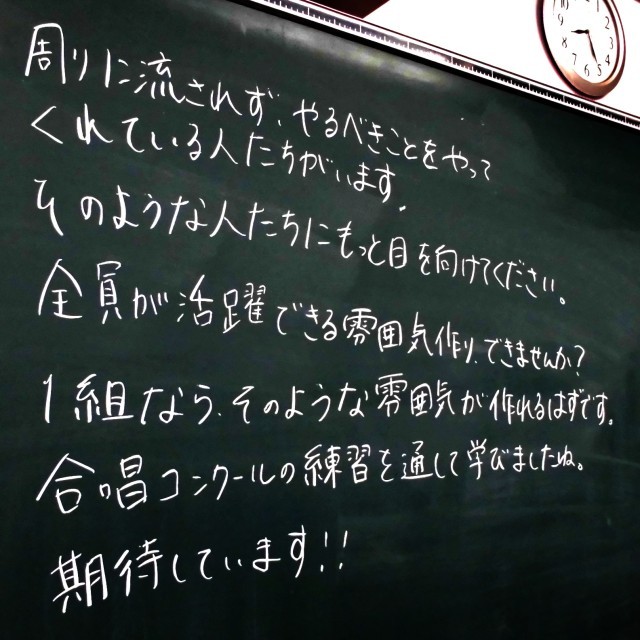 周りに流されず、やるべきことをやって
くれている人たちがいます。
そのような人たちにもっと目を向けてください。
全員が活躍できる雰囲気作り、できませんか?
1組なら、そのような雰囲気が作れるはずです。
合唱コンクールの練習を通して学びましたね。
期待しています!!
10 9 8 7 6 5 4 3